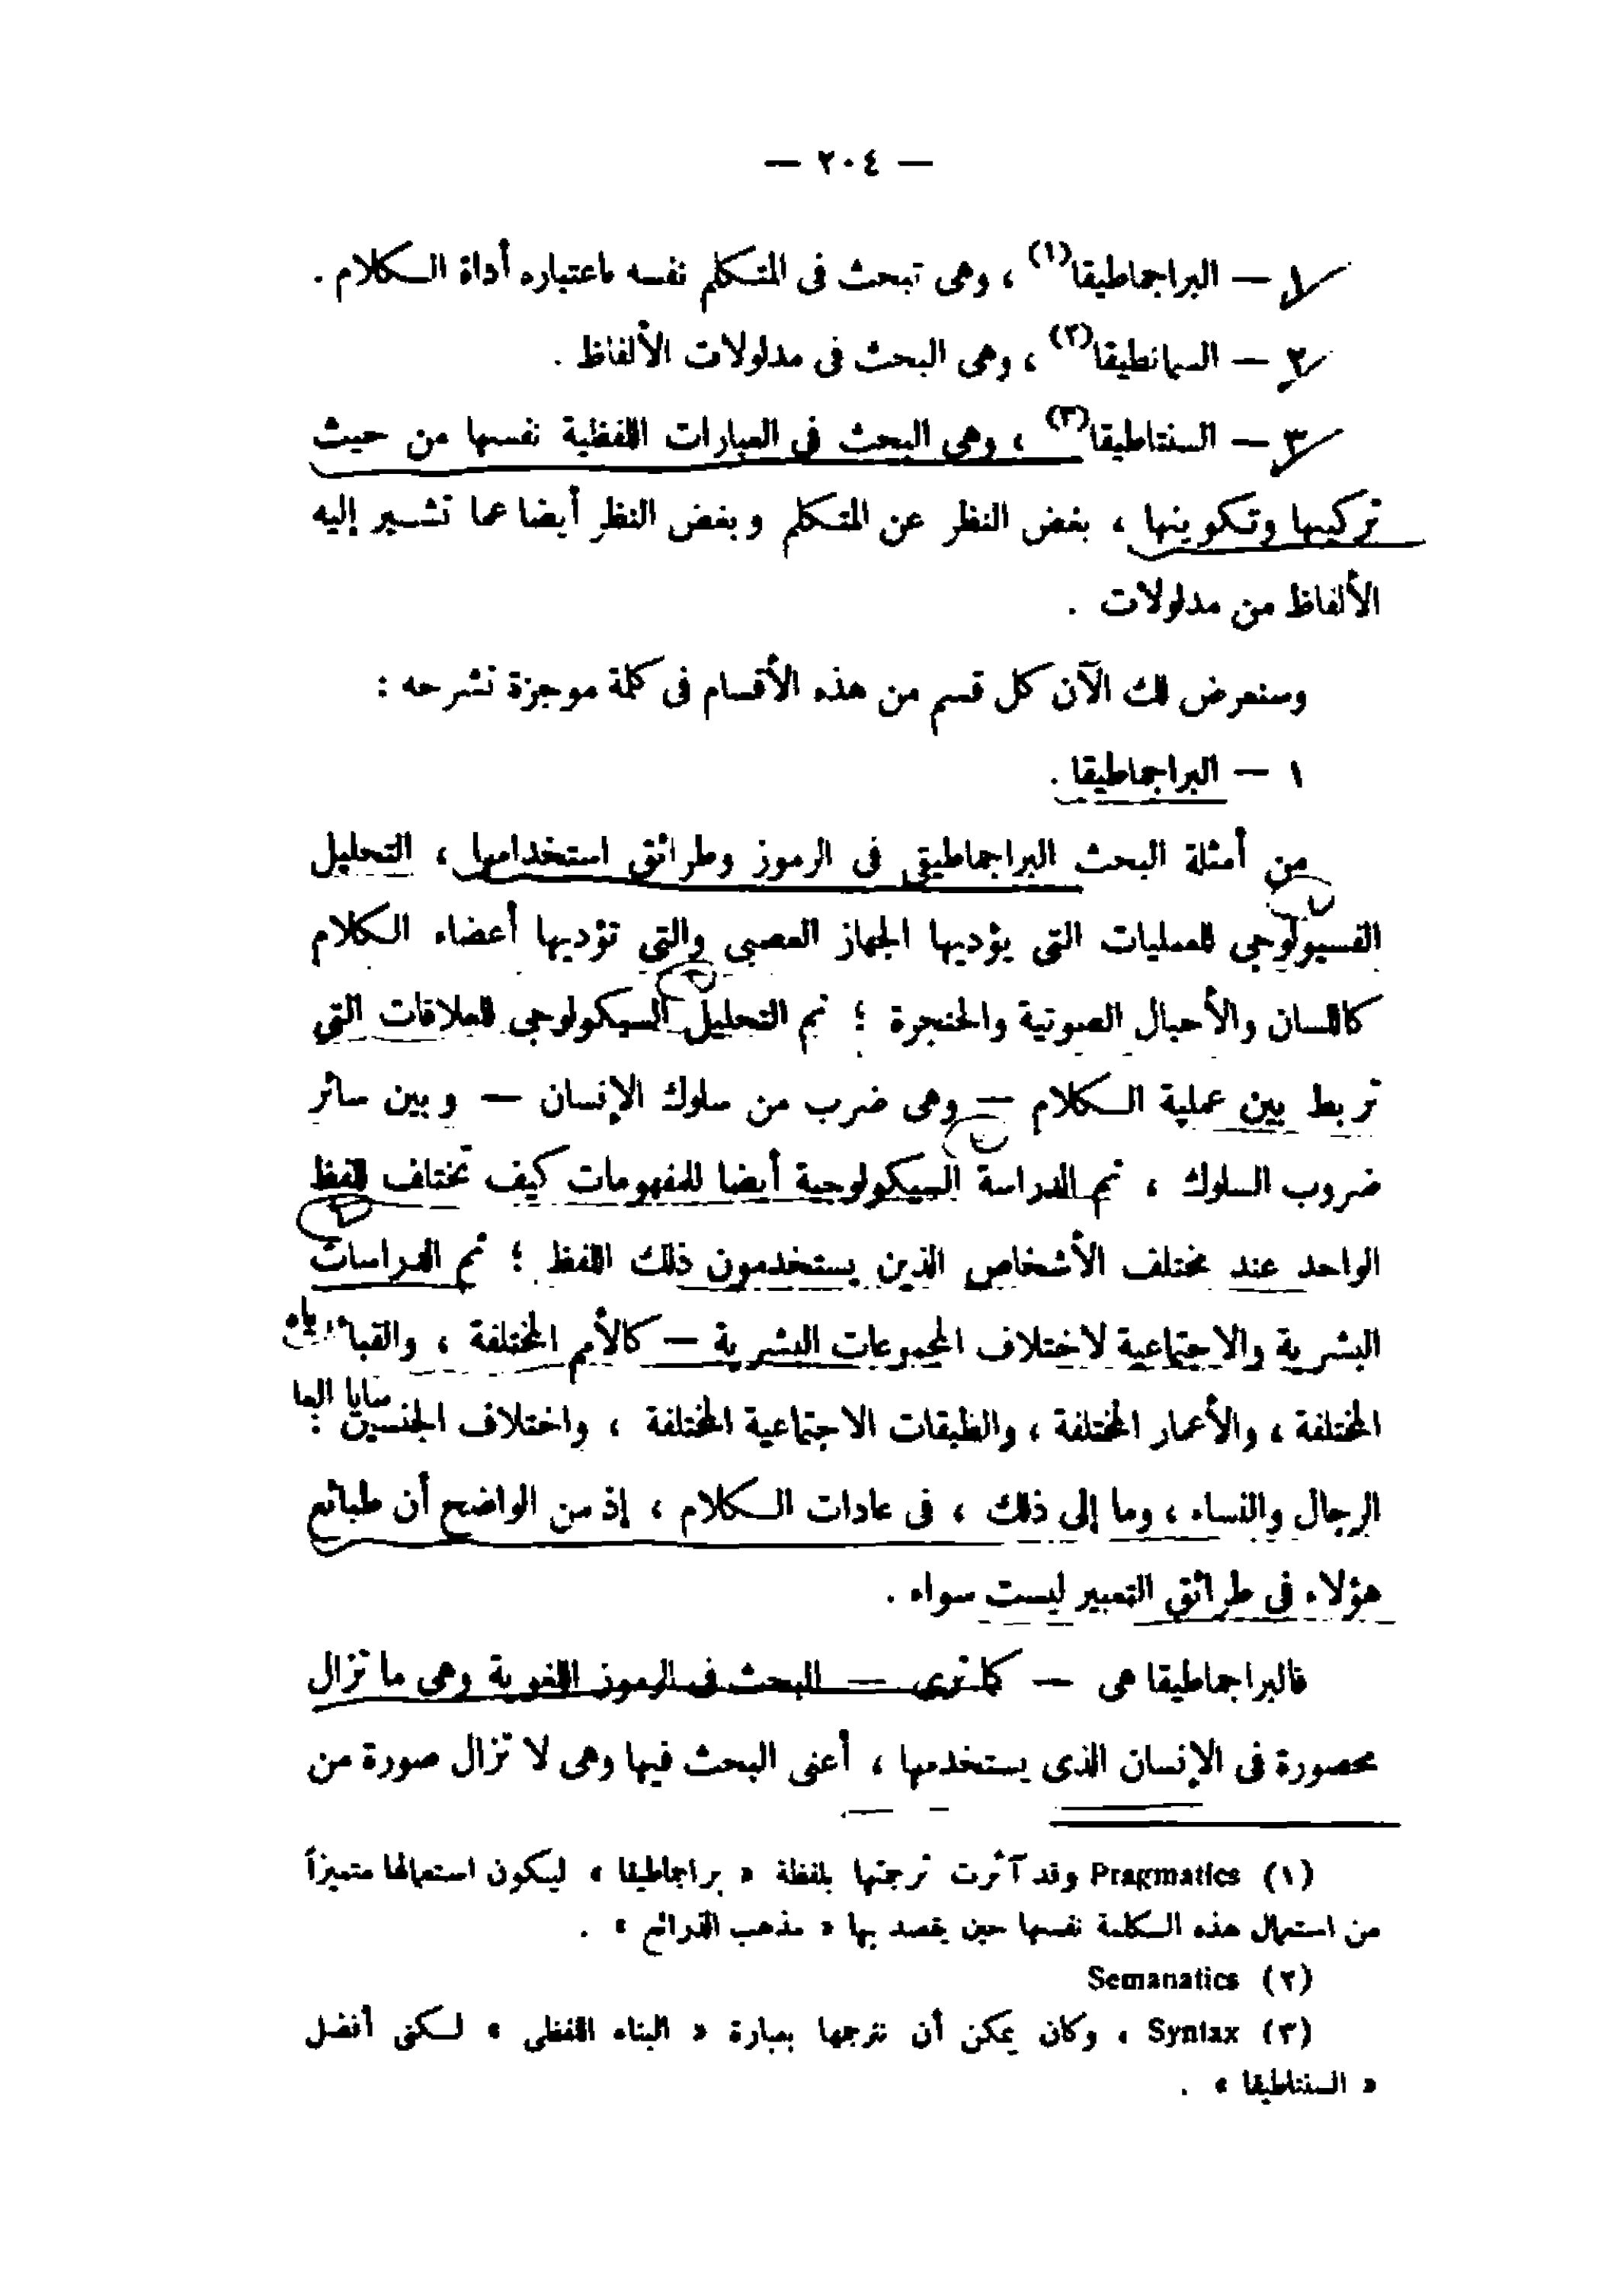 — ٢٠٤ —
١ — البراجماطيقا(١) ، وهى تبحث فى المتكلم نفسه باعتباره أداة الكلام .
٢ — السيمانطيقا(٢) ، وهى البحث فى مدلولات الألفاظ .
٣ — السنتاطيقا(٣) ، وهى البحث فى العبارات اللفظية نفسها من حيث
تركيبها وتكوينها ، بغض النظر عن المتكلم وبغض النظر أيضا عما تشير إليه
الألفاظ من مدلولات .
وسنعرض لك الآن كل قسم من هذه الأقسام فى كلمة موجزة نشرحه :
١ — البراجماطيقا .
من أمثلة البحث البراجماطيقى فى الرموز وطرائق استخدامها ، التحليل
الفسيولوجى للعمليات التى يؤديها الجهاز العصبى والتى تؤديها أعضاء الكلام
كاللسان والأحبال الصوتية والحنجرة ؛ ثم التحليل السيكولوجى للعلاقات التى
تربط بين عملية الكلام — وهى ضرب من سلوك الإنسان — وبين سائر
ضروب السلوك ، ثم الدراسة السيكولوجية أيضا للمفهومات كيف تختلف للفظ
الواحد عند مختلف الأشخاص الذين يستخدمون ذلك اللفظ ؛ ثم الدراسات
البشرية والاجتماعية لاختلاف المجموعات البشرية — كالأمم المختلفة ، والقبائل
المختلفة ، والأعمار المختلفة ، والطبقات الاجتماعية المختلفة ، واختلاف الجنسين :
الرجال والنساء ، وما إلى ذلك ، فى عادات الكلام ، إذ من الواضح أن طبائع
هؤلاء فى طرائق التعبير ليست سواء .
فالبراجماطيقا هى — كما ترى — البحث فى الرموز اللغوية وهى ما تزال
محصورة فى الإنسان الذى يستخدمها ، أعنى البحث فيها وهى لا تزال صورة من
(١) Pragmatics وقد آثرت ترجمتها بلفظة « براجماطيقا » ليكون استعمالها متميزاً
من استعمال هذه الكلمة نفسها حين يقصد بها « مذهب الذرائع » .
(٢) Semanatics
(٣) Syntax ، وكان يمكن أن نترجمها بعبارة « البناء اللفظى » لكنى أفضل
« السنتاطيقا » .